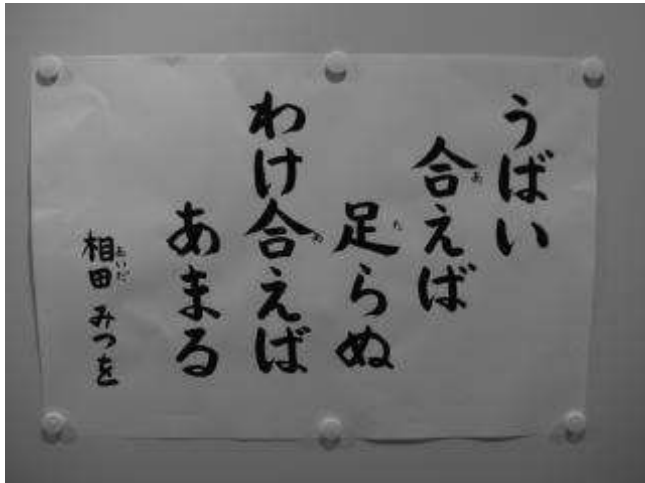 うばい
合えば
足らぬ
わけ合えば
あまる
相田 みつを